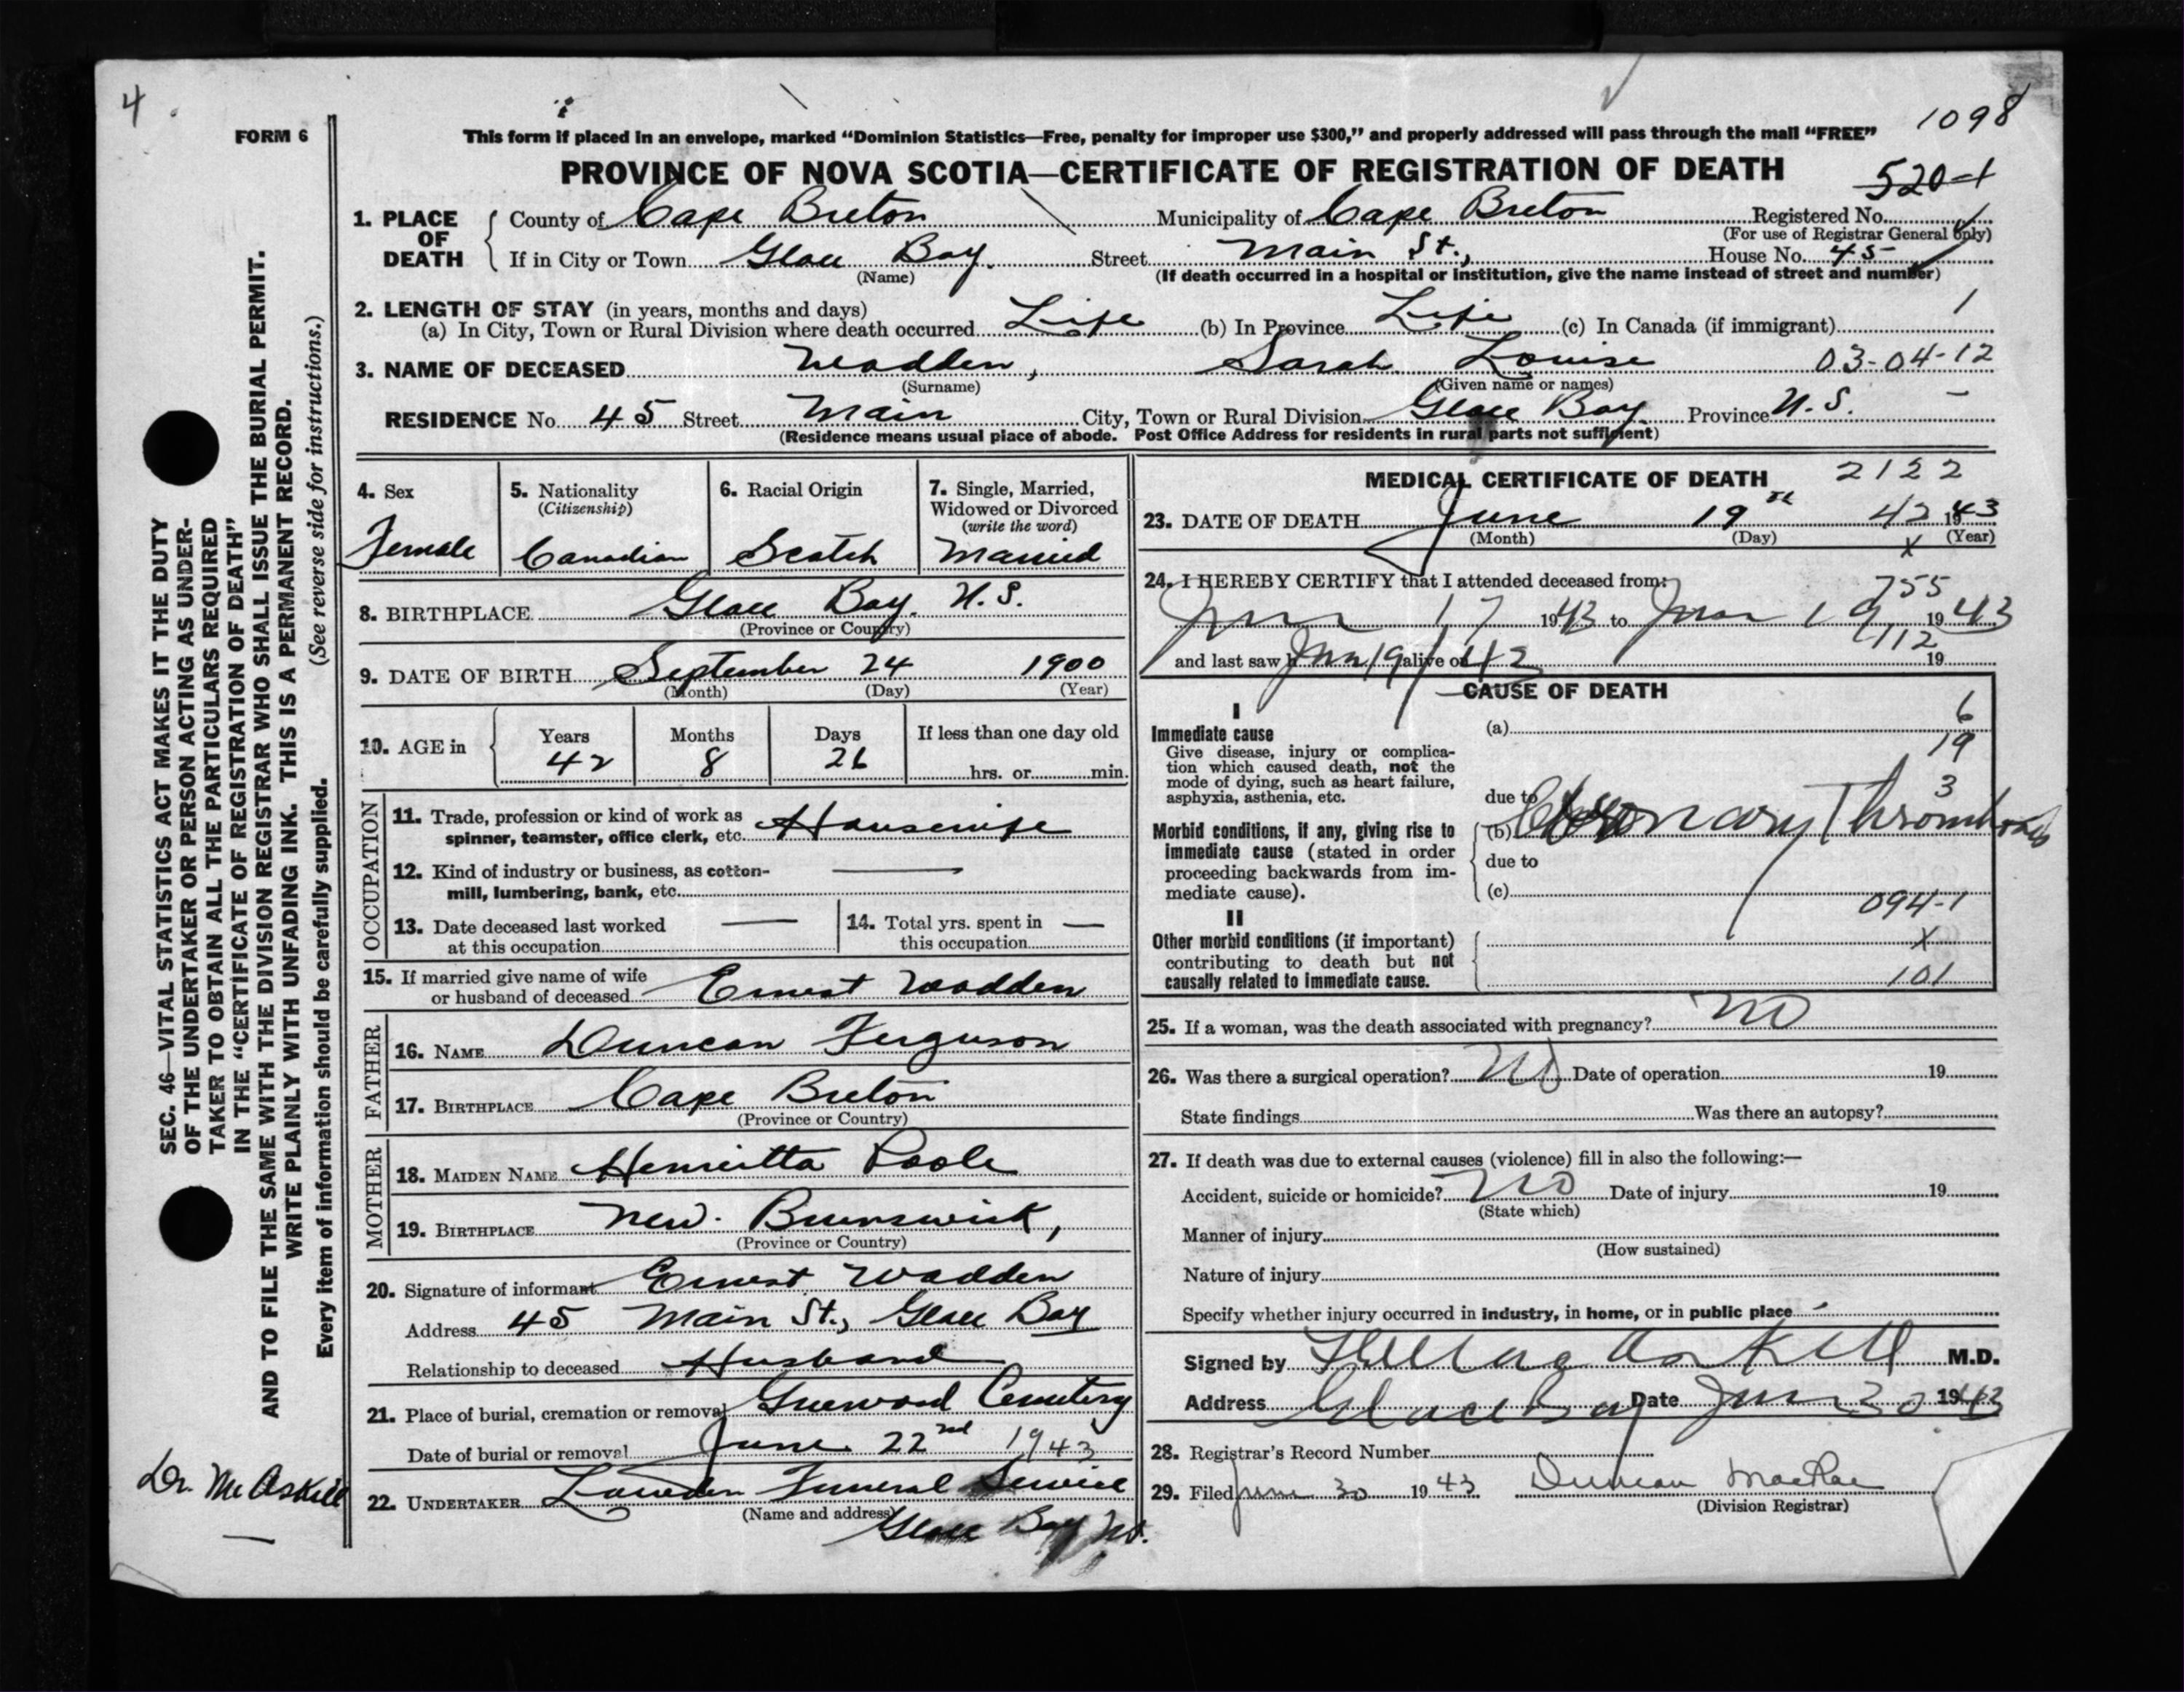 4
1098
FORM 6
This form if placed in an envelope, marked “Dominion Statistics—Free, penalty for improper use $300,” and properly addressed will pass through the mail “FREE”
PROVINCE OF NOVA SCOTIA—CERTIFICATE OF REGISTRATION OF DEATH
520-1
1. PLACE OF DEATH County of Cape Breton Municipality of Cape Breton Registered No.
(For use of Registrar General only)
If in City or Town Glace Bay. Street Main St., House No. 45
(Name) (If death occurred in a hospital or institution, give the name instead of street and number)
2. LENGTH OF STAY (in years, months and days) 1
(a) In City, Town or Rural Division where death occurred Life (b) In Province Life (c) In Canada (if immigrant)
3. NAME OF DECEASED Wadden, Sarah Louise 03-04-12
(Surname) (Given name or names)
RESIDENCE No. 45 Street Main City, Town or Rural Division Glace Bay Province N.S. -
(Residence means usual place of abode. Post Office Address for residents in rural parts not sufficient)
4. Sex
Female
5. Nationality
(Citizenship)
Canadian
6. Racial Origin
Scotch
7. Single, Married,
Widowed or Divorced
(write the word)
Married
8. BIRTHPLACE Glace Bay. N.S.
(Province or Country)
9. DATE OF BIRTH September 24 1900
(Month) (Day) (Year)
10. AGE in Years Months Days If less than one day old
42 8 26 hrs. or min.
OCCUPATION
11. Trade, profession or kind of work as
spinner, teamster, office clerk, etc. Housewife
12. Kind of industry or business, as cotton-
mill, lumbering, bank, etc. —
13. Date deceased last worked —
at this occupation
14. Total yrs. spent in —
this occupation
15. If married give name of wife
or husband of deceased Ernest Wadden
FATHER
16. NAME Duncan Ferguson
17. BIRTHPLACE Cape Breton
(Province or Country)
MOTHER
18. MAIDEN NAME Henrietta Poole
19. BIRTHPLACE New. Brunswick,
(Province or Country)
20. Signature of informant Ernest Wadden
Address 45 Main St., Glace Bay
Relationship to deceased Husband
21. Place of burial, cremation or removal Greenwood Cemetery
Date of burial or removal June 22nd 1943
22. UNDERTAKER Funeral Service
(Name and address)
Glace Bay N.S.
MEDICAL CERTIFICATE OF DEATH 2122
23. DATE OF DEATH June 19th 42 1943
(Month) (Day) (Year)
x
24. I HEREBY CERTIFY that I attended deceased from:
755
June 17 1943 to June 19 1943
112
and last saw h June 19/43 alive on 19
CAUSE OF DEATH
I
Immediate cause
Give disease, injury or complica-
tion which caused death, not the
mode of dying, such as heart failure,
asphyxia, asthenia, etc.
(a) 6
19
3
due to
Morbid conditions, if any, giving rise to
immediate cause (stated in order
proceeding backwards from im-
mediate cause).
(b) Coronary Thrombosis
due to
(c)
094-1
II
Other morbid conditions (if important)
contributing to death but not
causally related to immediate cause.
X
101
25. If a woman, was the death associated with pregnancy? no
26. Was there a surgical operation? No Date of operation 19
State findings Was there an autopsy?
27. If death was due to external causes (violence) fill in also the following:—
Accident, suicide or homicide? No Date of injury 19
(State which)
Manner of injury
(How sustained)
Nature of injury
Specify whether injury occurred in industry, in home, or in public place
Signed by M.D.
Address Glace Bay Date June 30 1943
28. Registrar’s Record Number
29. Filed June 30 1943 Duncan MacRae
(Division Registrar)
SEC. 46—VITAL STATISTICS ACT MAKES IT THE DUTY
OF THE UNDERTAKER OR PERSON ACTING AS UNDER-
TAKER TO OBTAIN ALL THE PARTICULARS REQUIRED
IN THE “CERTIFICATE OF REGISTRATION OF DEATH”
AND TO FILE THE SAME WITH THE DIVISION REGISTRAR WHO SHALL ISSUE THE BURIAL PERMIT.
WRITE PLAINLY WITH UNFADING INK. THIS IS A PERMANENT RECORD.
Every item of information should be carefully supplied. (See reverse side for instructions.)
Dr. McAskill